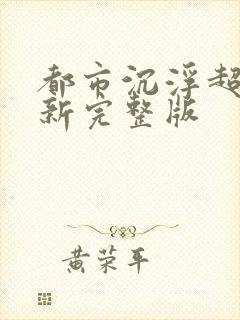 都市沉浮超
新完整版
黄荣平